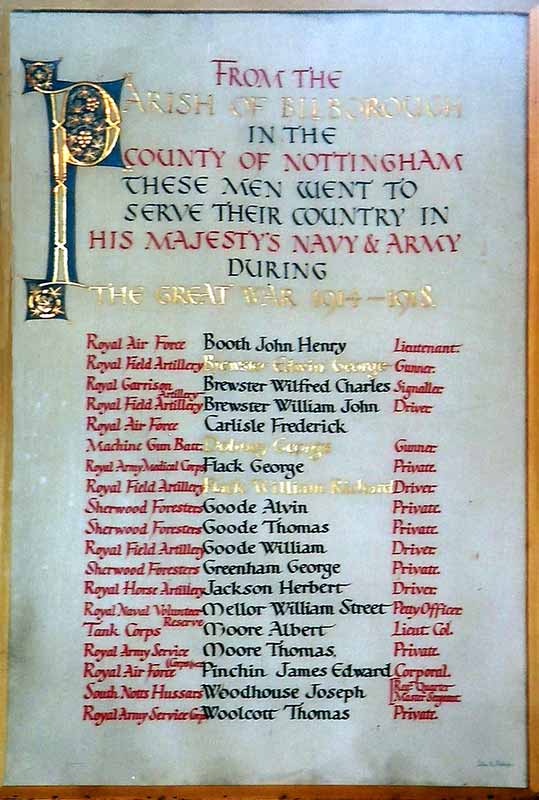 FROM THE
PARISH OF BILBOROUGH
IN THE
COUNTY OF NOTTINGHAM
THESE MEN WENT TO
SERVE THEIR COUNTRY IN
HIS MAJESTY'S NAVY & ARMY
DURING
THE GREAT WAR 1914–1918.
Royal Air Force Booth John Henry Lieutenant.
Royal Field Artillery Brewster Edwin George Gunner.
Royal Garrison Artillery Brewster Wilfred Charles Signaller.
Royal Field Artillery Brewster William John Driver.
Royal Air Force Carlisle Frederick
Machine Gun Batt. George Gunner.
Royal Army Medical Corps Flack George Private.
Royal Field Artillery Flack William Richard Driver.
Sherwood Foresters Goode Alvin Private.
Sherwood Foresters Goode Thomas Private.
Royal Field Artillery Goode William Driver.
Sherwood Foresters Greenham George Private.
Royal Horse Artillery Jackson Herbert Driver.
Royal Naval Volunteer Reserve Mellor William Street Petty Officer.
Tank Corps Moore Albert Lieut. Col.
Royal Army Service Corps Moore Thomas. Private.
Royal Air Force Pinchin James Edward Corporal.
South Notts Hussars Woodhouse Joseph Regt. Quarter Master Sergeant.
Royal Army Service Corps Woolcott Thomas Private.